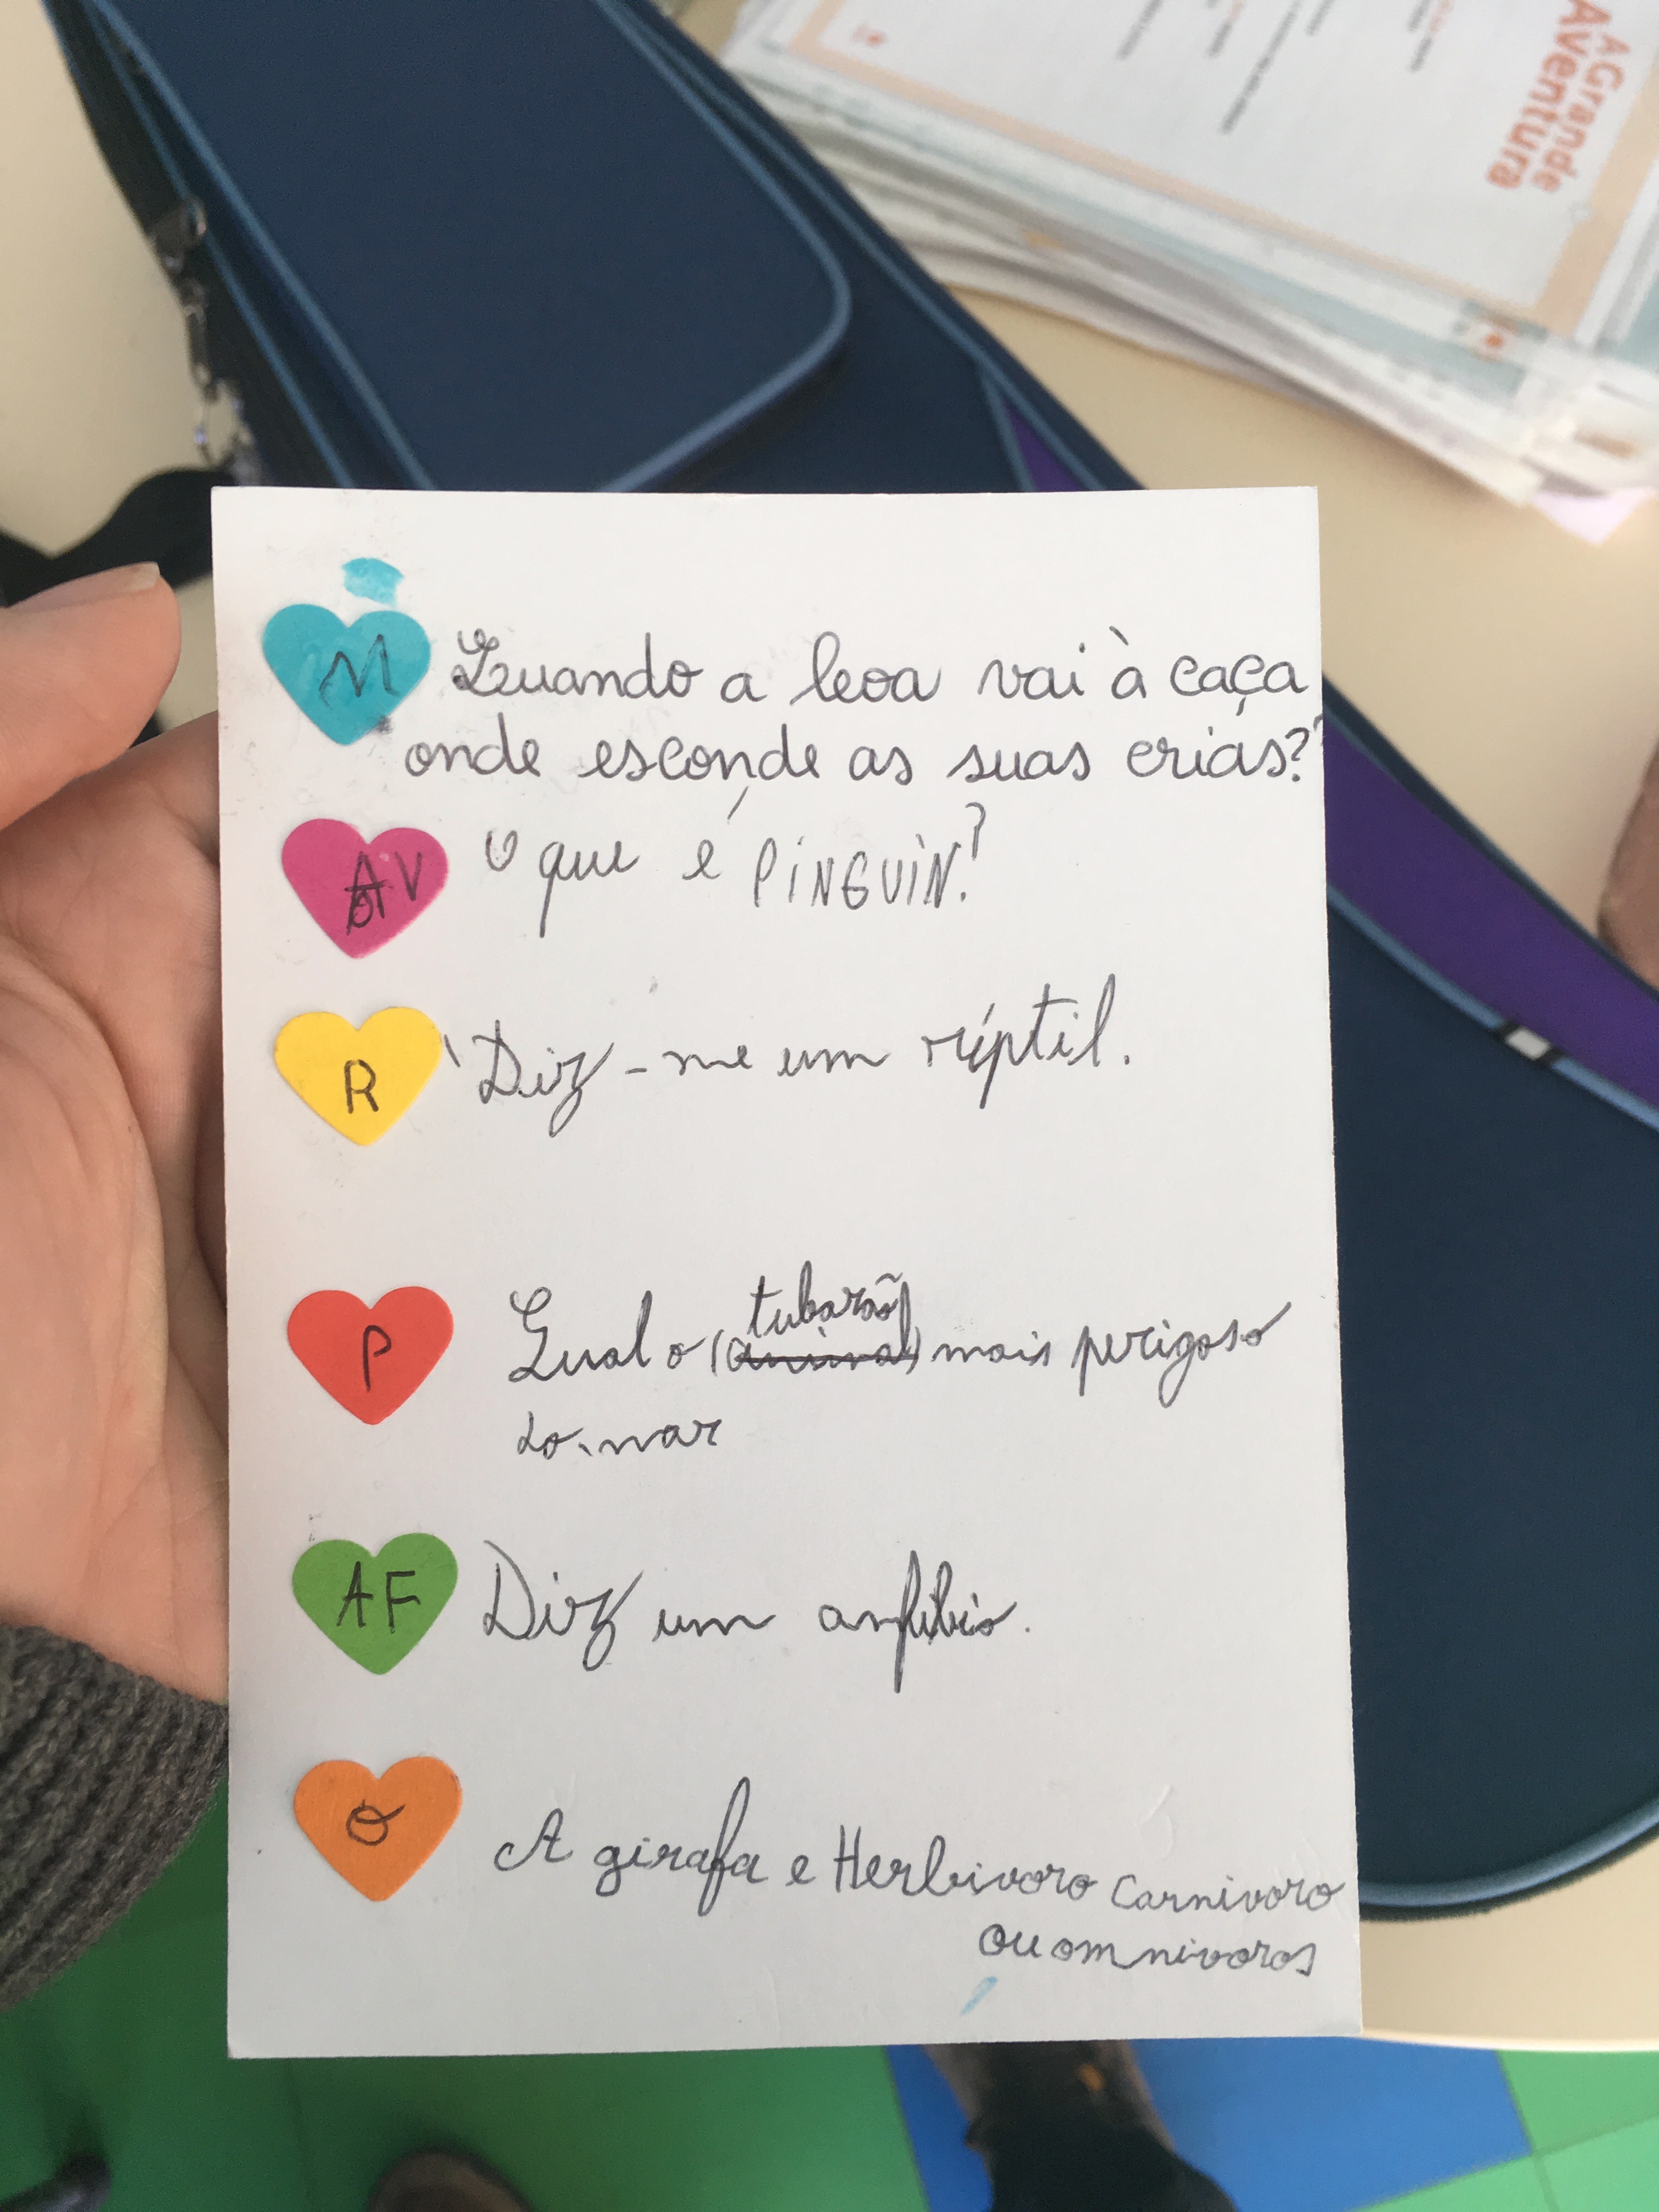 A Grande
Aventura
M
Quando a leoa vai à caça
onde esconde as suas crias?
AV
O que é PINGUIN?
R
Diz-me um réptil.
P
tubarão
Qual o (animal) mais perigoso
do mar
AF
Diz um anfíbio.
O
A girafa e Herbivoro Carnivoro
ou omnivoros